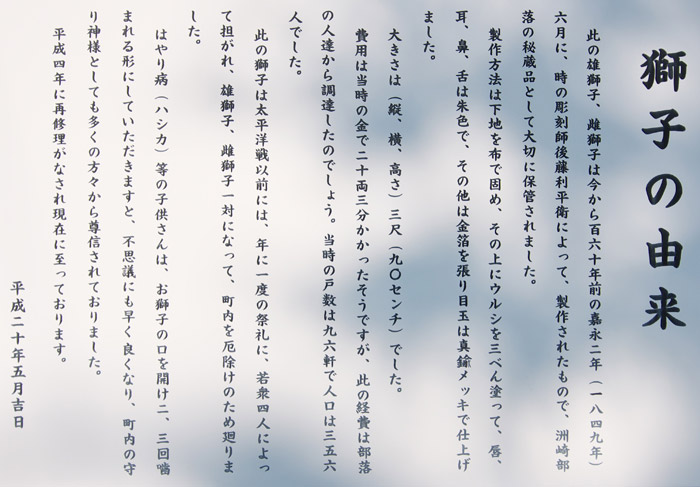 獅子の由来
此の雄獅子、雌獅子は今から百六十年前の嘉永二年（一八四九年）
六月に、時の彫刻師後藤利平衛によって、製作されたもので、洲崎部
落の秘蔵品として大切に保管されました。
製作方法は下地を布で固め、その上にウルシを三べん塗って、唇、
耳、鼻、舌は朱色で、その他は金箔を張り目玉は真鍮メッキで仕上げ
ました。
大きさは（縦、横、高さ）三尺（九〇センチ）でした。
費用は当時の金で二十両三分かかったそうですが、此の経費は部落
の人達から調達したのでしょう。当時の戸数は九六軒で人口は三五六
人でした。
此の獅子は太平洋戦以前には、年に一度の祭礼に、若衆四人によっ
て担がれ、雄獅子、雌獅子一対になって、町内を厄除けのため廻りま
した。
はやり病（ハシカ）等の子供さんは、お獅子の口を開け二、三回噛
まれる形にしていただきますと、不思議にも早く良くなり、町内の守
り神様としても多くの方々から尊信されておりました。
平成四年に再修理がなされ現在に至っております。
平成二十年五月吉日